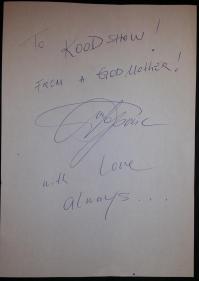 To KOODSHOW!
FROM A GODMOTHER!
with Love
always...